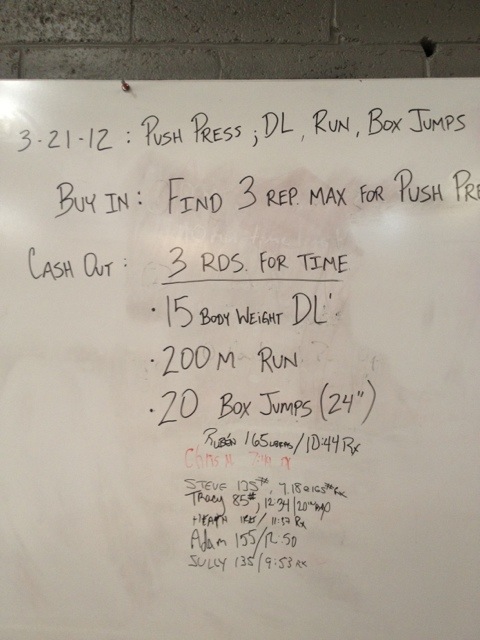 3-21-12 : PUSH PRESS ; DL, RUN, BOX JUMPS
BUY IN : FIND 3 REP. MAX FOR PUSH PRE
CASH OUT : 3 RDS. FOR TIME
· 15 BODY WEIGHT DL'
· 200 M RUN
· 20 BOX JUMPS (24")
RUBÉN 165 / 10:44 Rx
Chris
STEVE 135#, 7:18 @ 165# Rx
Tracy 85#, 12:34 / 20"
HEATH / 11:37 Rx
Adam 155 / 12:50
SULLY 135 / 9:53 RX